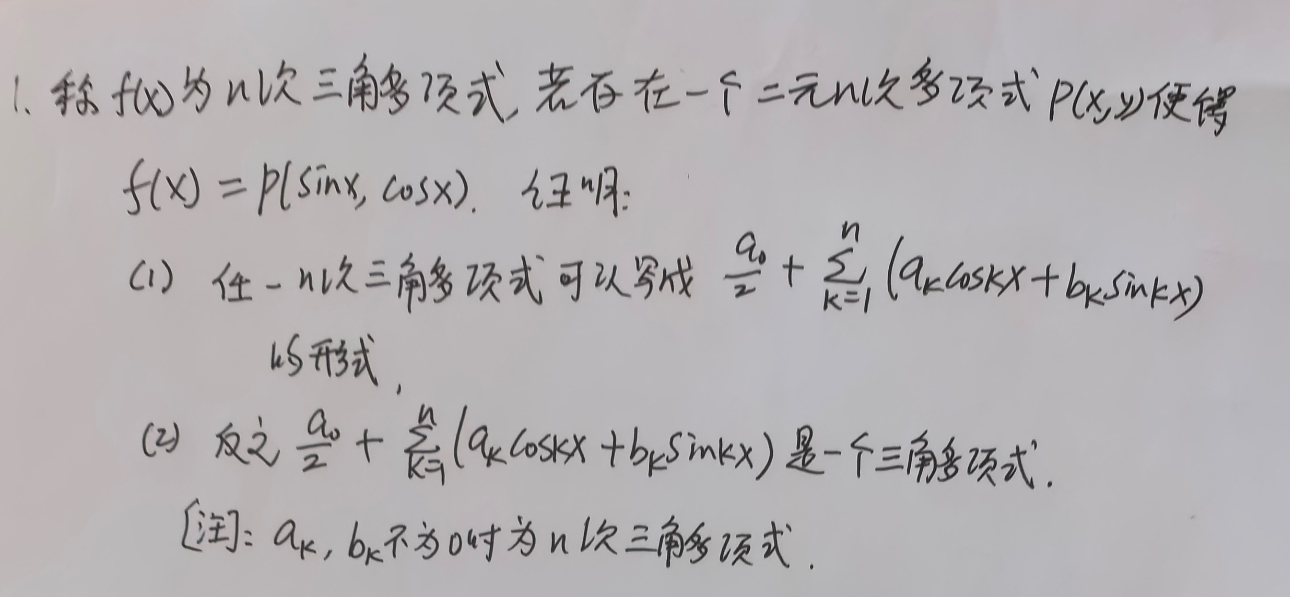 1. 称 f(x) 为 n 次三角多项式, 若存在一个二元n次多项式 P(x,y) 使得
f(x) = P(sinx, cosx). 证明:
(1) 任一n次三角多项式可以写成 a₀/2 + ∑_{k=1}^{n} (aₖcoskx + bₖsinkx)
的形式,
(2) 反之 a₀/2 + ∑_{k=1}^{n} (aₖcoskx + bₖsinkx) 是一个三角多项式.
[注]: aₖ, bₖ不为0时为n次三角多项式.